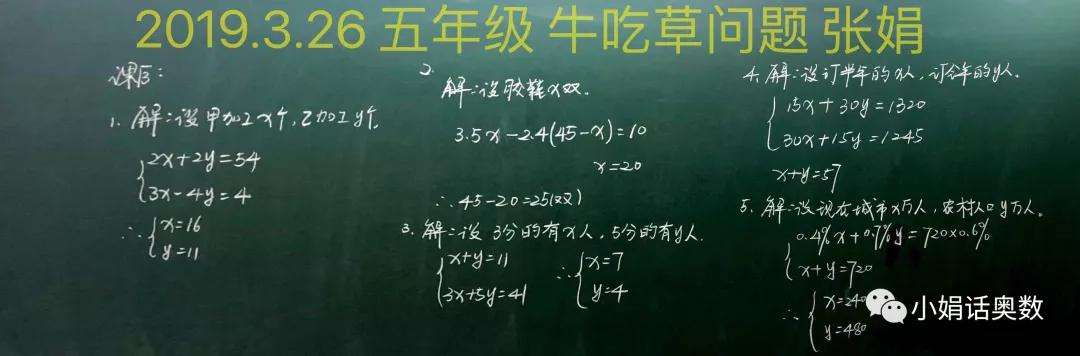 2019.3.26 五年级 牛吃草问题 张娟
课三:
1. 解:设甲加工x个, 乙加工y个.
2x+2y=54
3x-4y=4
∴ x=16
y=11
2.
解:设胶鞋x双.
3.5x-2.4(45-x)=10
x=20
∴45-20=25(双)
3. 解:设3分的有x人, 5分的有y人.
x+y=11
3x+5y=41
∴ x=7
y=4
4. 解:设订半年的x人, 订全年的y人.
15x+30y=1320
30x+15y=1245
x+y=57
5. 解:设现在城市x万人, 农村人口y万人。
0.4%x+0.7%y=720×0.6%
x+y=720
∴ x=240
y=480
小娟话奥数